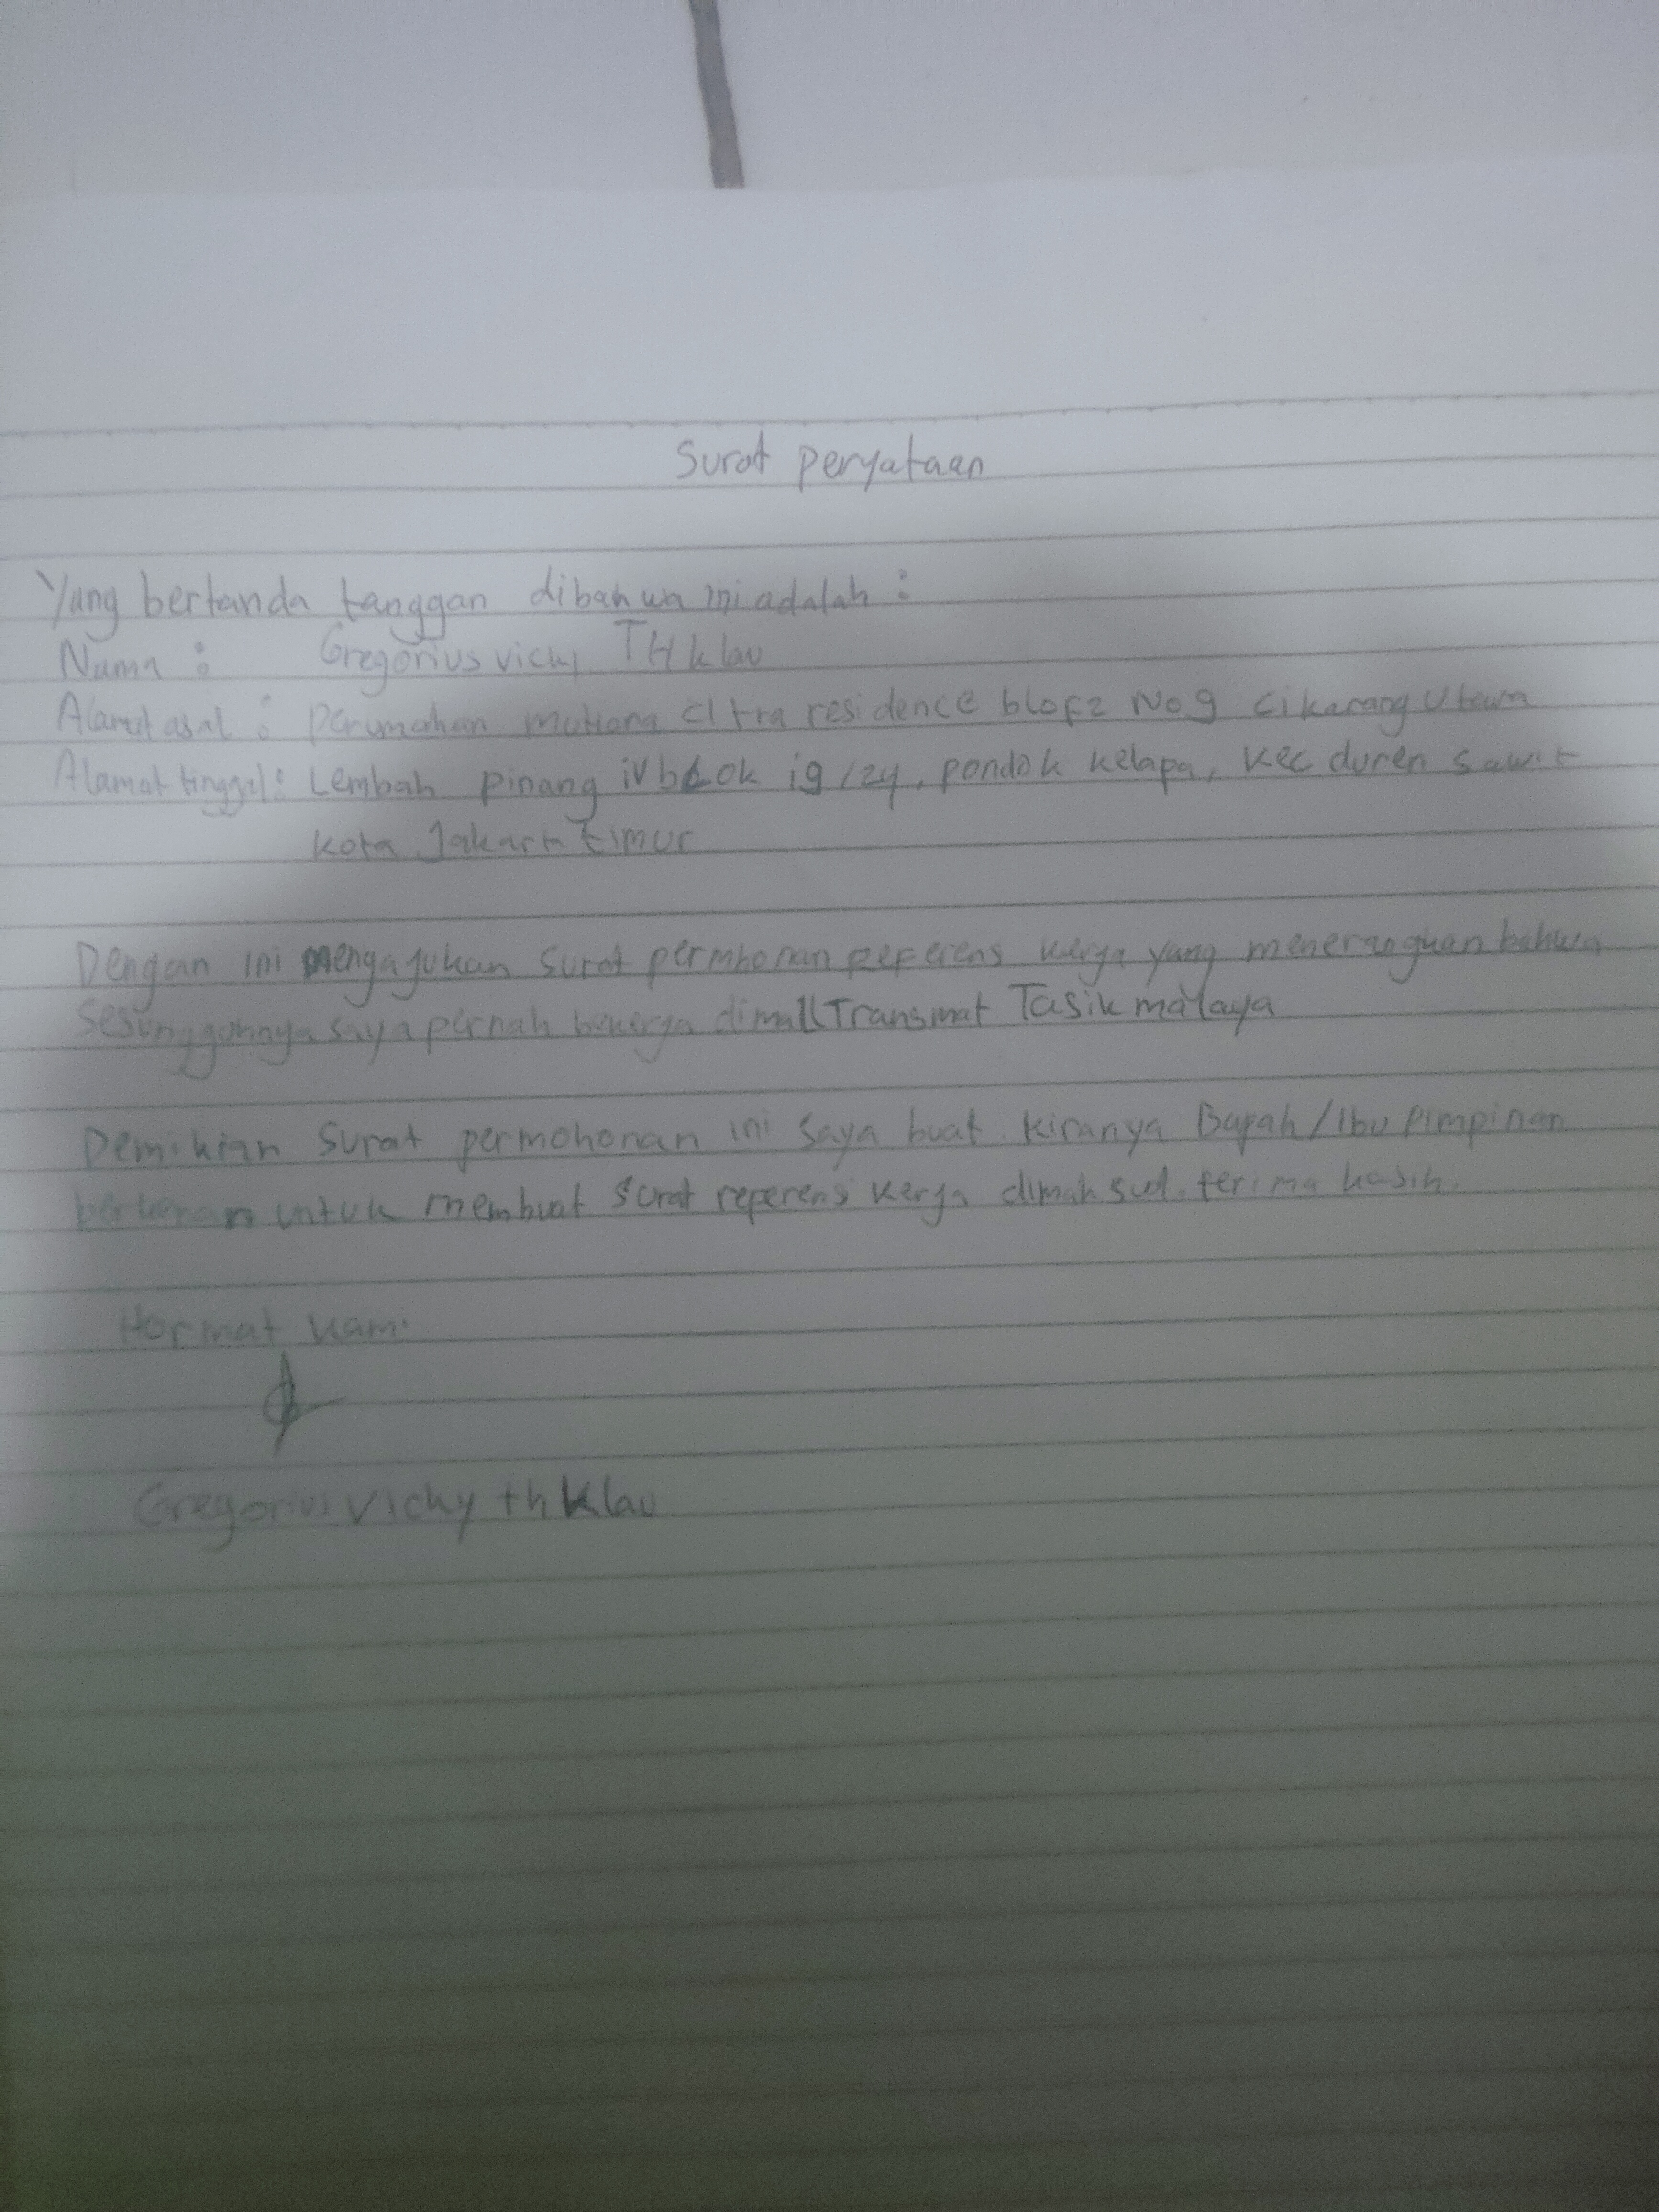 Surat peryataan
Yang bertanda tanggan dibahwa ini adalah :
Nama : Gregorius vichy TH klau
Alamat asal : perumahan mutiara citra residence blof2 No 9 cikarang Utama
Alamat tinggal : Lembah pinang iv blok i9/24, pondok kelapa, kec duren sawit
kota Jakarta timur
Dengan ini mengajukan surat permhonan reperens kerja yang menerangkan bahwa
sesunggunnya saya pernah bekerja dimall Transmat Tasik malaya
Demikian surat permohonan ini saya buat kiranya Bapak/Ibu Pimpinan
berkenan untuk membuat surat reperens kerja dimaksud. terima kasih.
Hormat kami
Gregorius Vichy th Klau